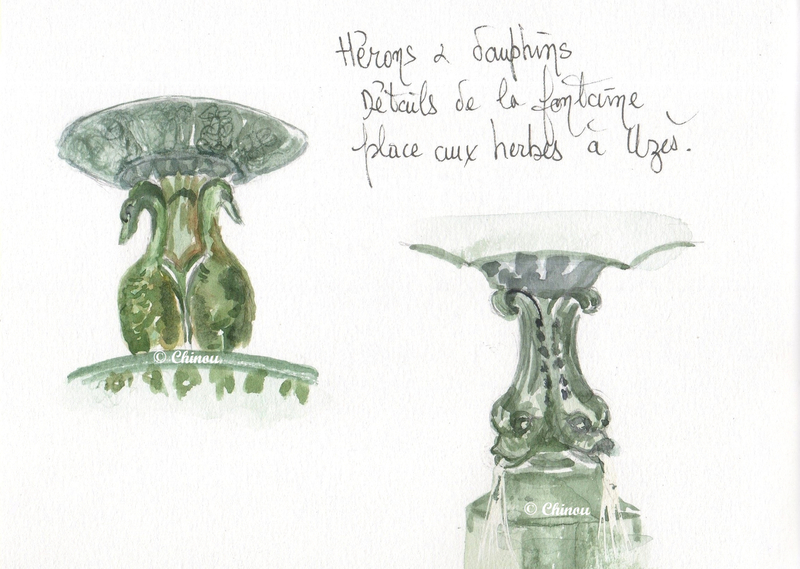 Hérons & dauphins
Détails de la fontaine
place aux herbes à Uzès.
© Chinou
© Chinou